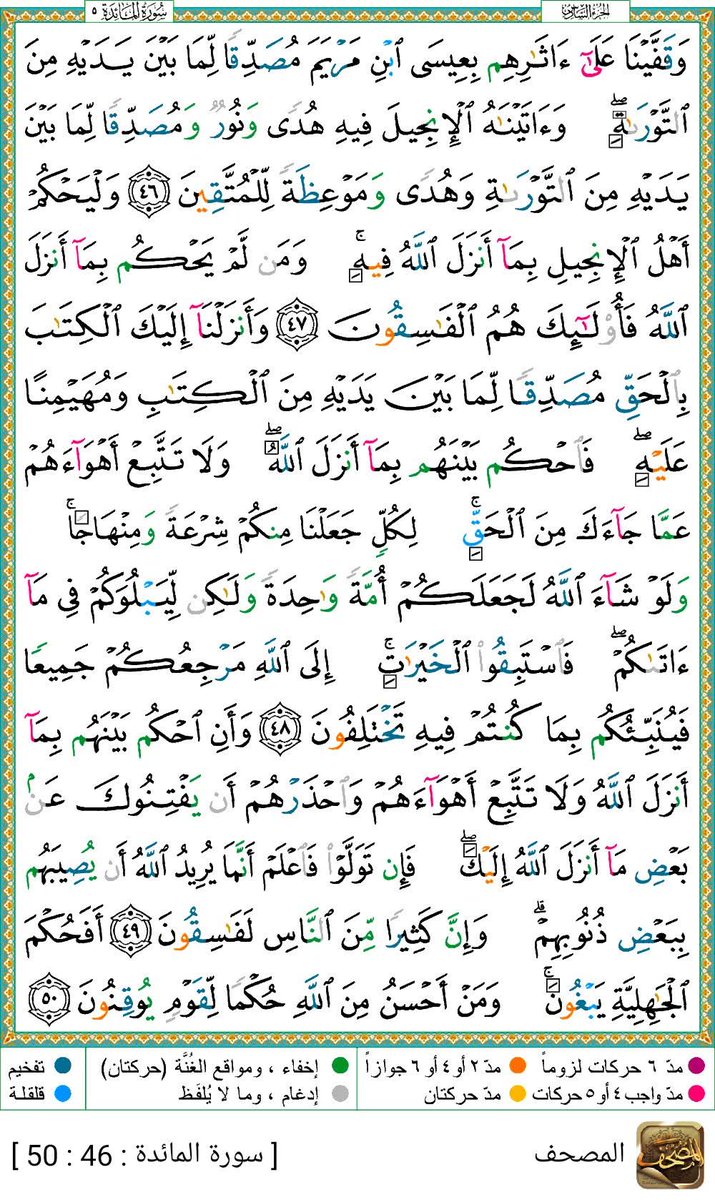 الجزء السادس
سورة المائدة ٥
وَقَفَّيْنَا عَلَىٰٓ ءَاثَـٰرِهِم بِعِيسَى ٱبْنِ مَرْيَمَ مُصَدِّقًا لِّمَا بَيْنَ يَدَيْهِ مِنَ
ٱلتَّوْرَىٰةِ ۖ وَءَاتَيْنَـٰهُ ٱلْإِنجِيلَ فِيهِ هُدًى وَنُورٌ وَمُصَدِّقًا لِّمَا بَيْنَ
يَدَيْهِ مِنَ ٱلتَّوْرَىٰةِ وَهُدًى وَمَوْعِظَةً لِّلْمُتَّقِينَ ٤٦ وَلْيَحْكُمْ
أَهْلُ ٱلْإِنجِيلِ بِمَآ أَنزَلَ ٱللَّهُ فِيهِ ۚ وَمَن لَّمْ يَحْكُم بِمَآ أَنزَلَ
ٱللَّهُ فَأُو۟لَـٰٓئِكَ هُمُ ٱلْفَـٰسِقُونَ ٤٧ وَأَنزَلْنَآ إِلَيْكَ ٱلْكِتَـٰبَ
بِٱلْحَقِّ مُصَدِّقًا لِّمَا بَيْنَ يَدَيْهِ مِنَ ٱلْكِتَـٰبِ وَمُهَيْمِنًا
عَلَيْهِ ۖ فَٱحْكُم بَيْنَهُم بِمَآ أَنزَلَ ٱللَّهُ ۖ وَلَا تَتَّبِعْ أَهْوَآءَهُمْ
عَمَّا جَآءَكَ مِنَ ٱلْحَقِّ ۚ لِكُلٍّ جَعَلْنَا مِنكُمْ شِرْعَةً وَمِنْهَاجًا ۚ
وَلَوْ شَآءَ ٱللَّهُ لَجَعَلَكُمْ أُمَّةً وَٰحِدَةً وَلَـٰكِن لِّيَبْلُوَكُمْ فِى مَآ
ءَاتَىٰكُمْ ۖ فَٱسْتَبِقُوا۟ ٱلْخَيْرَٰتِ ۚ إِلَى ٱللَّهِ مَرْجِعُكُمْ جَمِيعًا
فَيُنَبِّئُكُم بِمَا كُنتُمْ فِيهِ تَخْتَلِفُونَ ٤٨ وَأَنِ ٱحْكُم بَيْنَهُم بِمَآ
أَنزَلَ ٱللَّهُ وَلَا تَتَّبِعْ أَهْوَآءَهُمْ وَٱحْذَرْهُمْ أَن يَفْتِنُوكَ عَنۢ
بَعْضِ مَآ أَنزَلَ ٱللَّهُ إِلَيْكَ ۖ فَإِن تَوَلَّوْا۟ فَٱعْلَمْ أَنَّمَا يُرِيدُ ٱللَّهُ أَن يُصِيبَهُم
بِبَعْضِ ذُنُوبِهِمْ ۗ وَإِنَّ كَثِيرًا مِّنَ ٱلنَّاسِ لَفَـٰسِقُونَ ٤٩ أَفَحُكْمَ
ٱلْجَـٰهِلِيَّةِ يَبْغُونَ ۚ وَمَنْ أَحْسَنُ مِنَ ٱللَّهِ حُكْمًا لِّقَوْمٍ يُوقِنُونَ ٥٠
مدّ ٦ حركات لزوماً مدّ ٢ أو ٤ أو ٦ جوازاً إخفاء ، ومواقع الغُنَّة (حركتان) تفخيم
مدّ واجب ٤ أو ٥ حركات مدّ حركتان إدغام ، وما لا يُلفَظ قلقلة
المصحف
[ سورة المائدة : 46 : 50 ]
المصحف